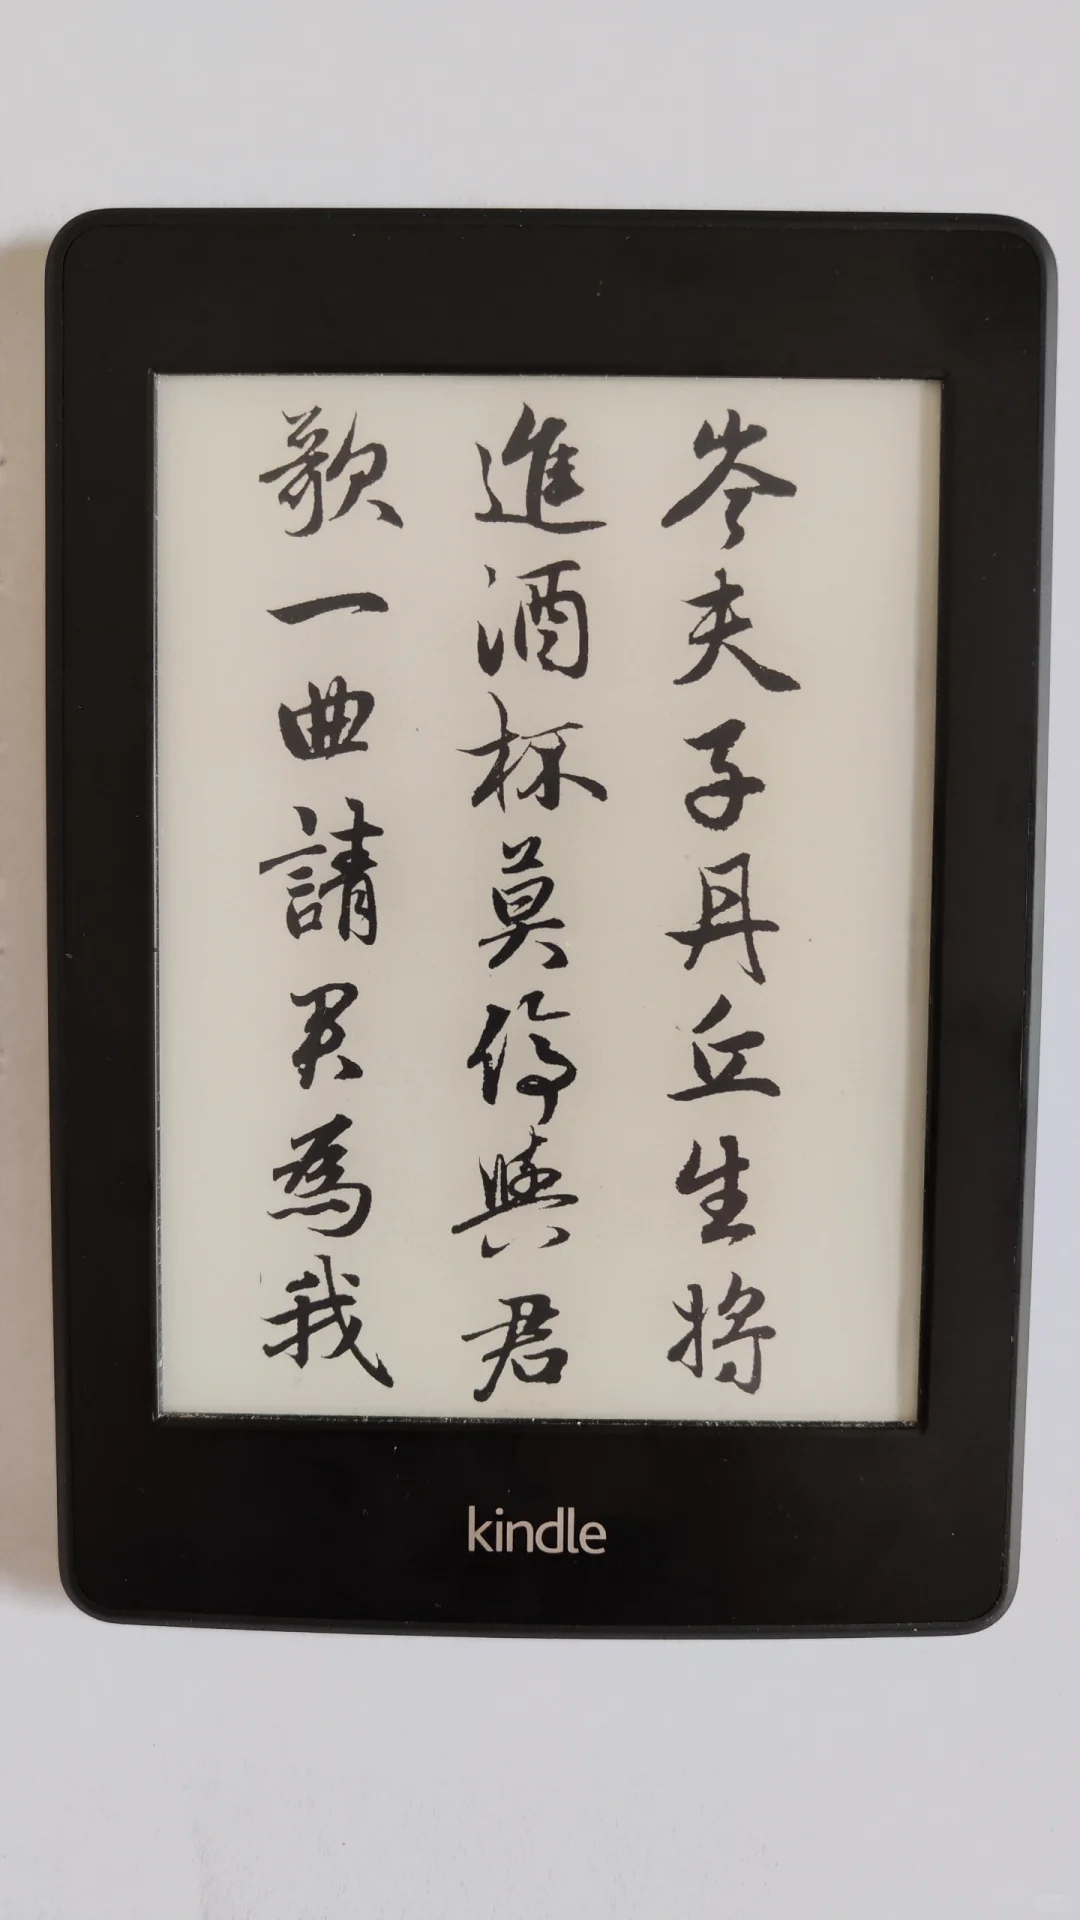 岑夫子丹丘生將
進酒杯莫停與君
歌一曲請君為我
kindle